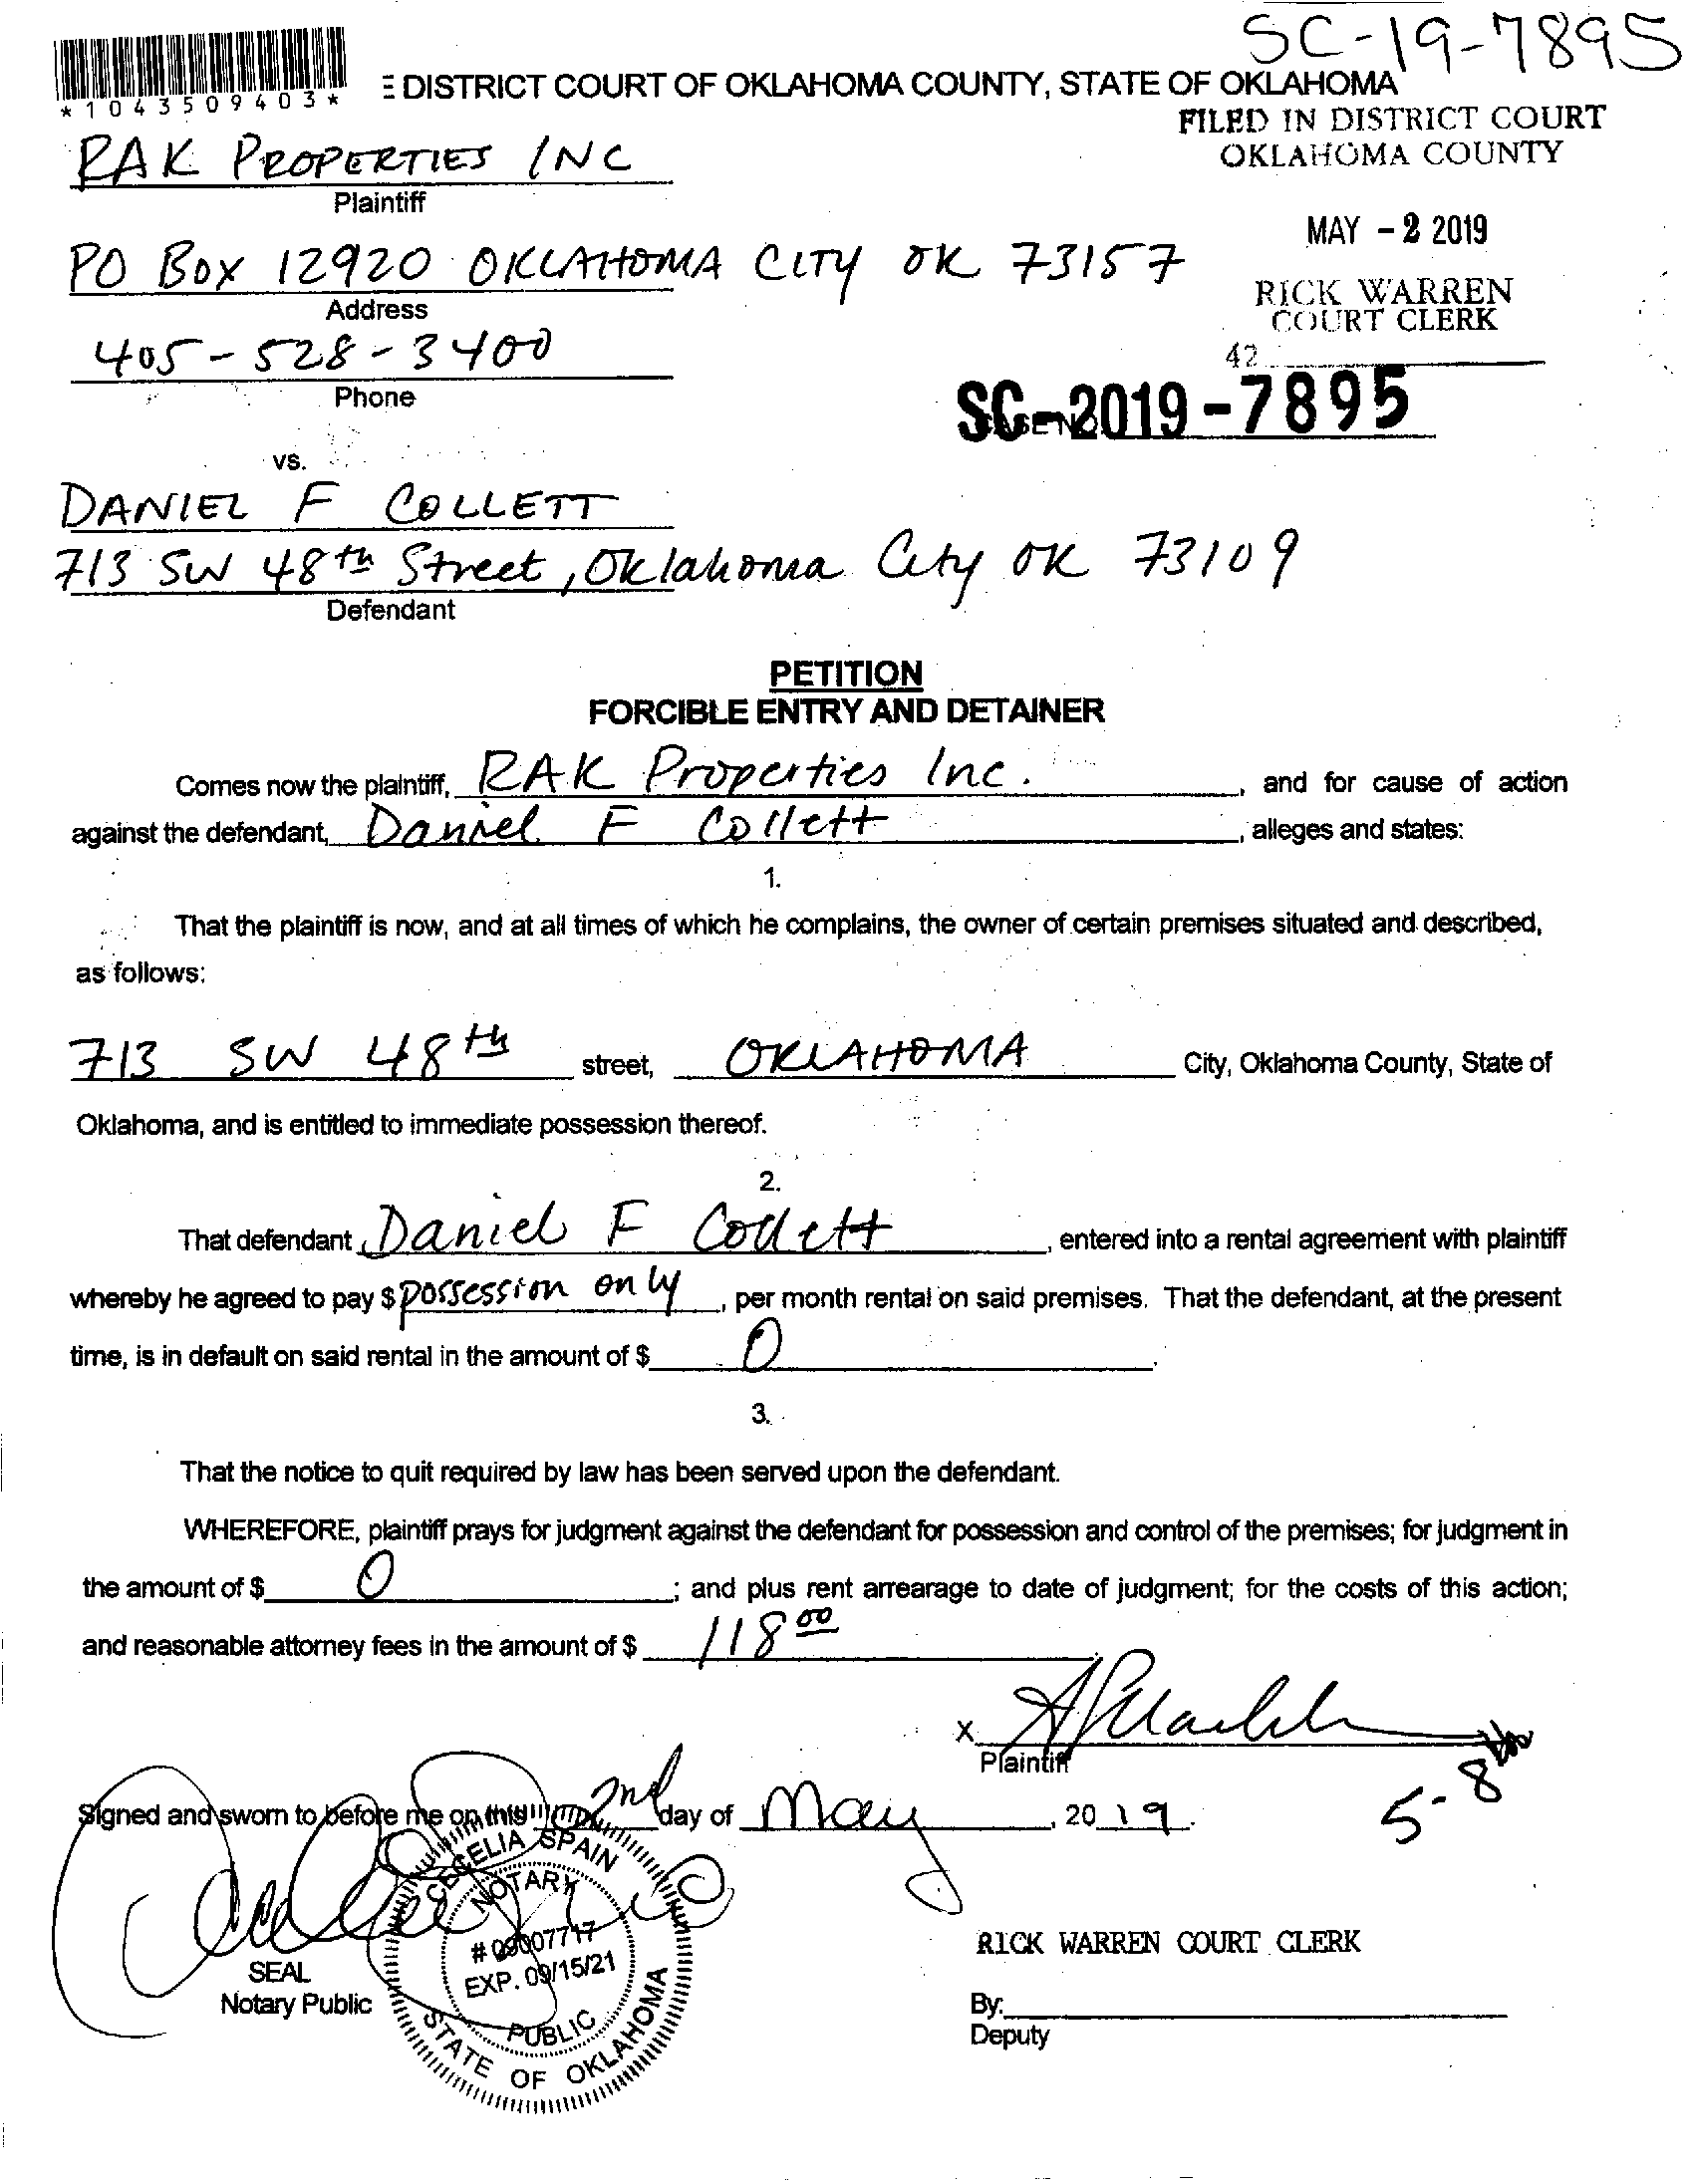 SC-19-7895
*1043509403*
E DISTRICT COURT OF OKLAHOMA COUNTY, STATE OF OKLAHOMA
FILED IN DISTRICT COURT
OKLAHOMA COUNTY
RAK PROPERTIES INC
Plaintiff
MAY -2 2019
PO BOX 12920 OKLAHOMA CITY OK 73157
Address
RICK WARREN
COURT CLERK
405-528-3400
42
Phone
SC-2019-7895
vs.
DANIEL F COLLETT
713 SW 48th Street, Oklahoma City OK 73109
Defendant
PETITION
FORCIBLE ENTRY AND DETAINER
Comes now the plaintiff, RAK Properties Inc. , and for cause of action
against the defendant, Daniel F Collett , alleges and states:
1.
That the plaintiff is now, and at all times of which he complains, the owner of certain premises situated and described,
as follows:
713 SW 48th street, OKLAHOMA City, Oklahoma County, State of
Oklahoma, and is entitled to immediate possession thereof.
2.
That defendant Daniel F Collett , entered into a rental agreement with plaintiff
whereby he agreed to pay $ possession only , per month rental on said premises. That the defendant, at the present
time, is in default on said rental in the amount of $ 0 .
3.
That the notice to quit required by law has been served upon the defendant.
WHEREFORE, plaintiff prays for judgment against the defendant for possession and control of the premises; for judgment in
the amount of $ 0 ; and plus rent arrearage to date of judgment; for the costs of this action;
and reasonable attorney fees in the amount of $ 118 00
X
Plaintiff
5-8
Signed and sworn to before me on this 2nd day of May , 20 19 .
CECELIA SPAIN
NOTARY
# 09007717
EXP. 09/15/21
PUBLIC
STATE OF OKLAHOMA
SEAL
Notary Public
RICK WARREN COURT CLERK
By:
Deputy